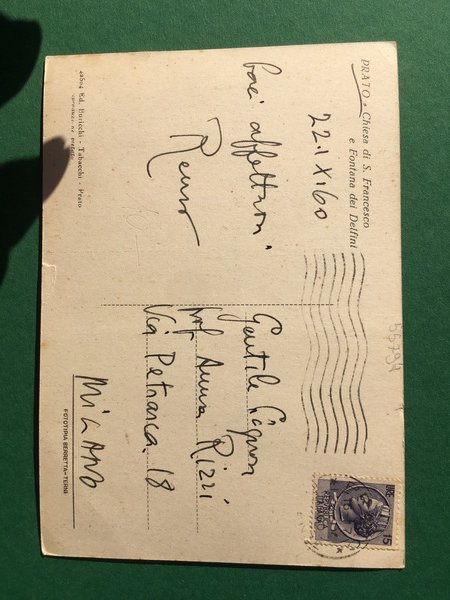 PRATO - Chiesa di S. Francesco
e Fontana dei Delfini
22.1 X1 60
baci affettuosi
Renzo
Gentile Signora
Prof Anna Rizzi
Via Petrarca 18
MILANO
Ed. Buricchi - Tabacchi - Prato
FOTOTIPIA BERRETTA-TERNI
55794
15